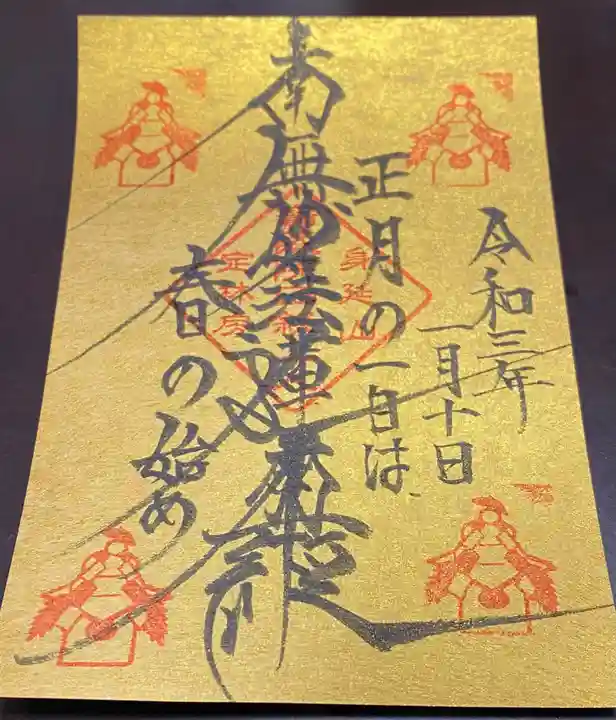 令和三年
一月十日
正月の一日は、
南無妙法蓮華経
春の始め
身延山
定林房